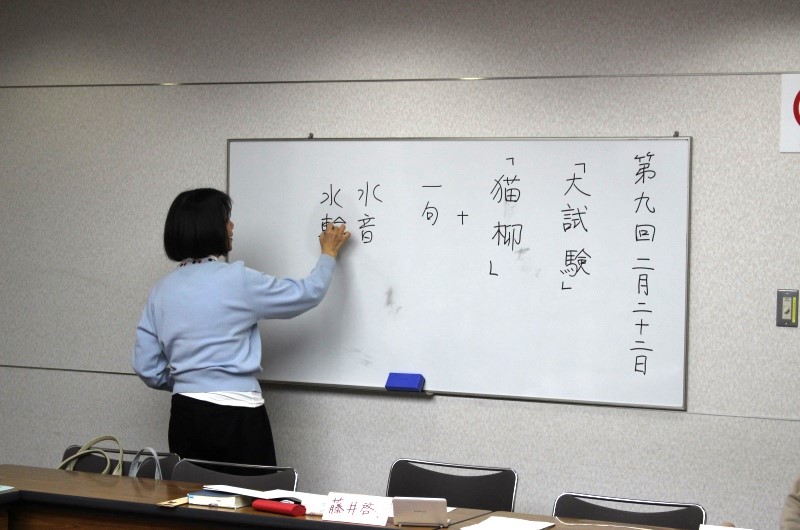 第九回 二月二十二日
「大試験」
「猫柳」
+
一句
水音
水輪
藤井啓